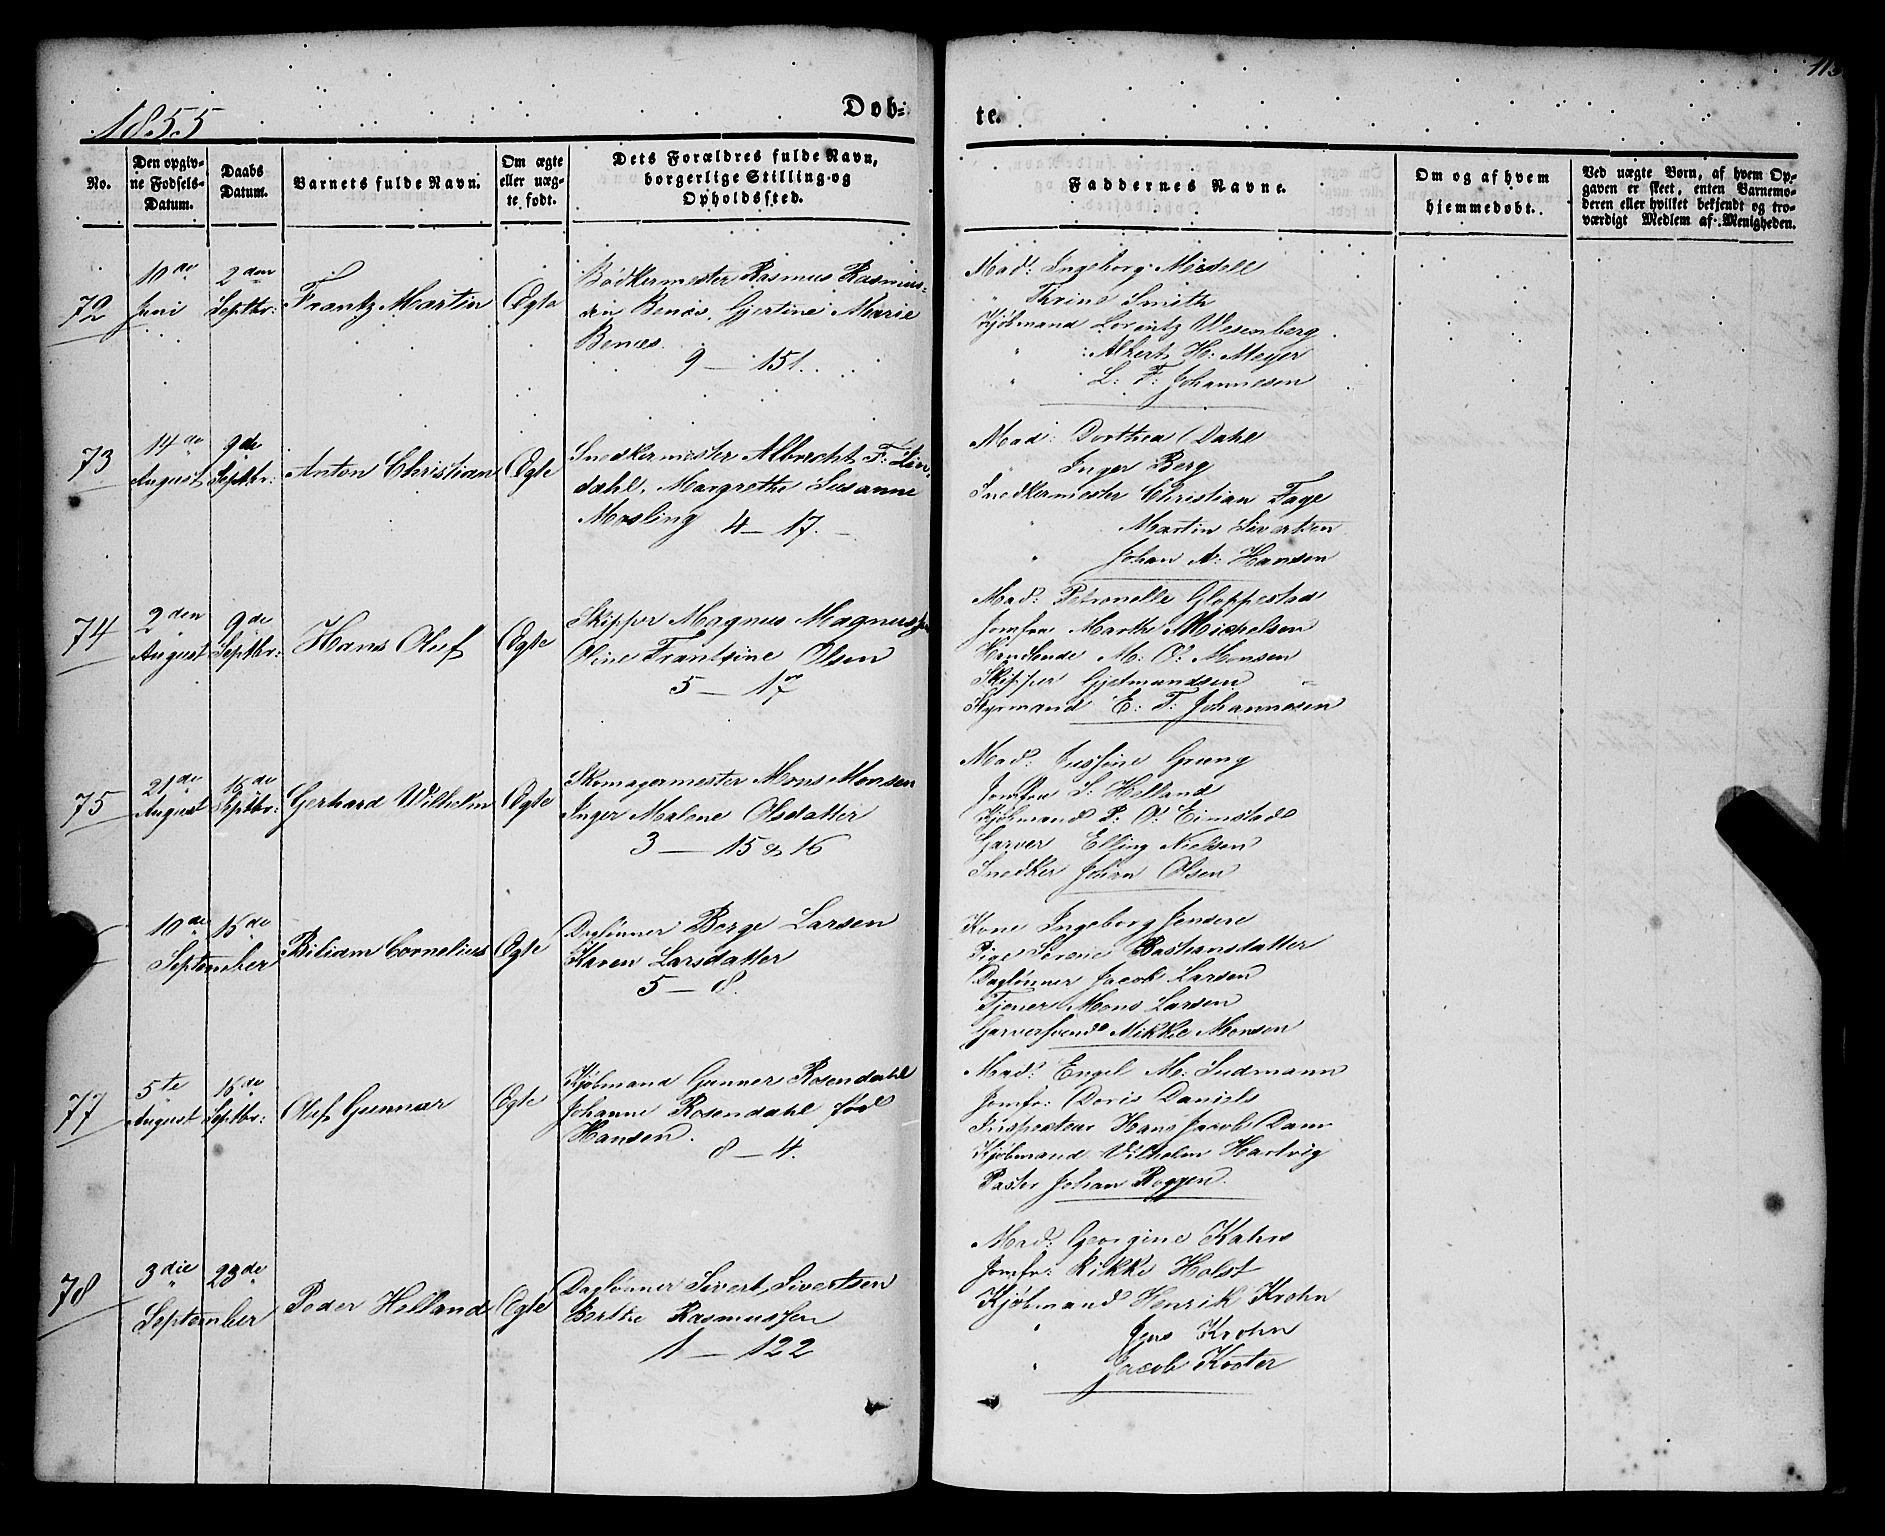 113
1855
Døb=
te.
No.
Den opgiv-
ne Fødsels-
Datum.
Daabs
Datum.
Barnets fulde Navn.
Om ægte
eller uæg-
te født.
Dets Forældres fulde Navn,
borgerlige Stilling og
Opholdssted.
Faddernes Navne.
Om og af hvem
hjemmedøbt.
Ved uægte Børn, af hvem Op-
gaven er skeet, enten Barnemo-
deren eller hvilket bekjendt og tro-
værdigt Medlem af Menigheden.
72
10de
Juni
2den
Septbr:
Frantz Martin
Ægte
Bødkermester Rasmus Rasmus-
sen Benæs, Gjertine Marie
Benæs.
9 — 151.
Mad: Ingeborg Misdell
" Thrine Smith
Kjøbmand Lorentz Wesenberg
" Albert H: Meyer
" L: F: Johannesen
73
14de
August
9de
Septbr:
Anton Christian
Ægte
Snedkermester Albrecht F: Lin-
dahl, Margrethe Susanne
Mosling 4 — 17.
Mad: Dorthea Dahl
" Inger Berg
Snedkermester Christian Faye
" Martin Sivertsen
" Johan A: Hansen
74
2den
August
9de
Septbr:
Hans Oluf
Ægte
Skipper Magnus Magnussen
Oline Frantzine Olsen
5 — 17
Mad: Petronelle Gloppestad
Jomfru Marthe Michelsen
Handlende M: O: Monsen
Skipper Gjetmundsen
Styrmand E: T: Johannesen
75
21de
August
16de
Septbr:
Gerhard Wilhelm
Ægte
Skomagermester Mons Monsen
Inger Malene Olsdatter
3 — 15 & 16
Mad: Grung
Jomfru S: Helland
Kjøbmand P: O: Eimstad
Garver Elling Nielsen
Snedker Johan Olsen
10de
16de
September
Biliam Cornelius
Ægte
Daglønner Børge Larsen
Karen Larsdatter
5 — 8.
Kone Ingeborg Jensere
Pige Serene Bastiansdatter
Daglønner Jacob Larsen
Tjener Mons Larsen
Garversvend Mikkel Monsen
77
5te
August
16de
Septbr:
Oluf Gunnar
Ægte
Kjøbmand Gunner Rosendahl
Johanne Rosendahl fød
Hansen.
8 — 4.
Mad: Engel M: Sudmann
Jomfr: Doris Daniels
Inspecteur Hans Jacob Dam
Kjøbmand Vilhelm Hartvig
Paster Johan Roggen.
78
3die
23de
September
Peder Helland
Ægte
Daglønner Sivert Sivertsen
Berthe Rasmussen
1 — 122
Mad: Georgine Kahrs
Jomfr: Rikke Holst
Kjøbmand Henrik Krohn
" Jens Krohn
" Jacob Koster